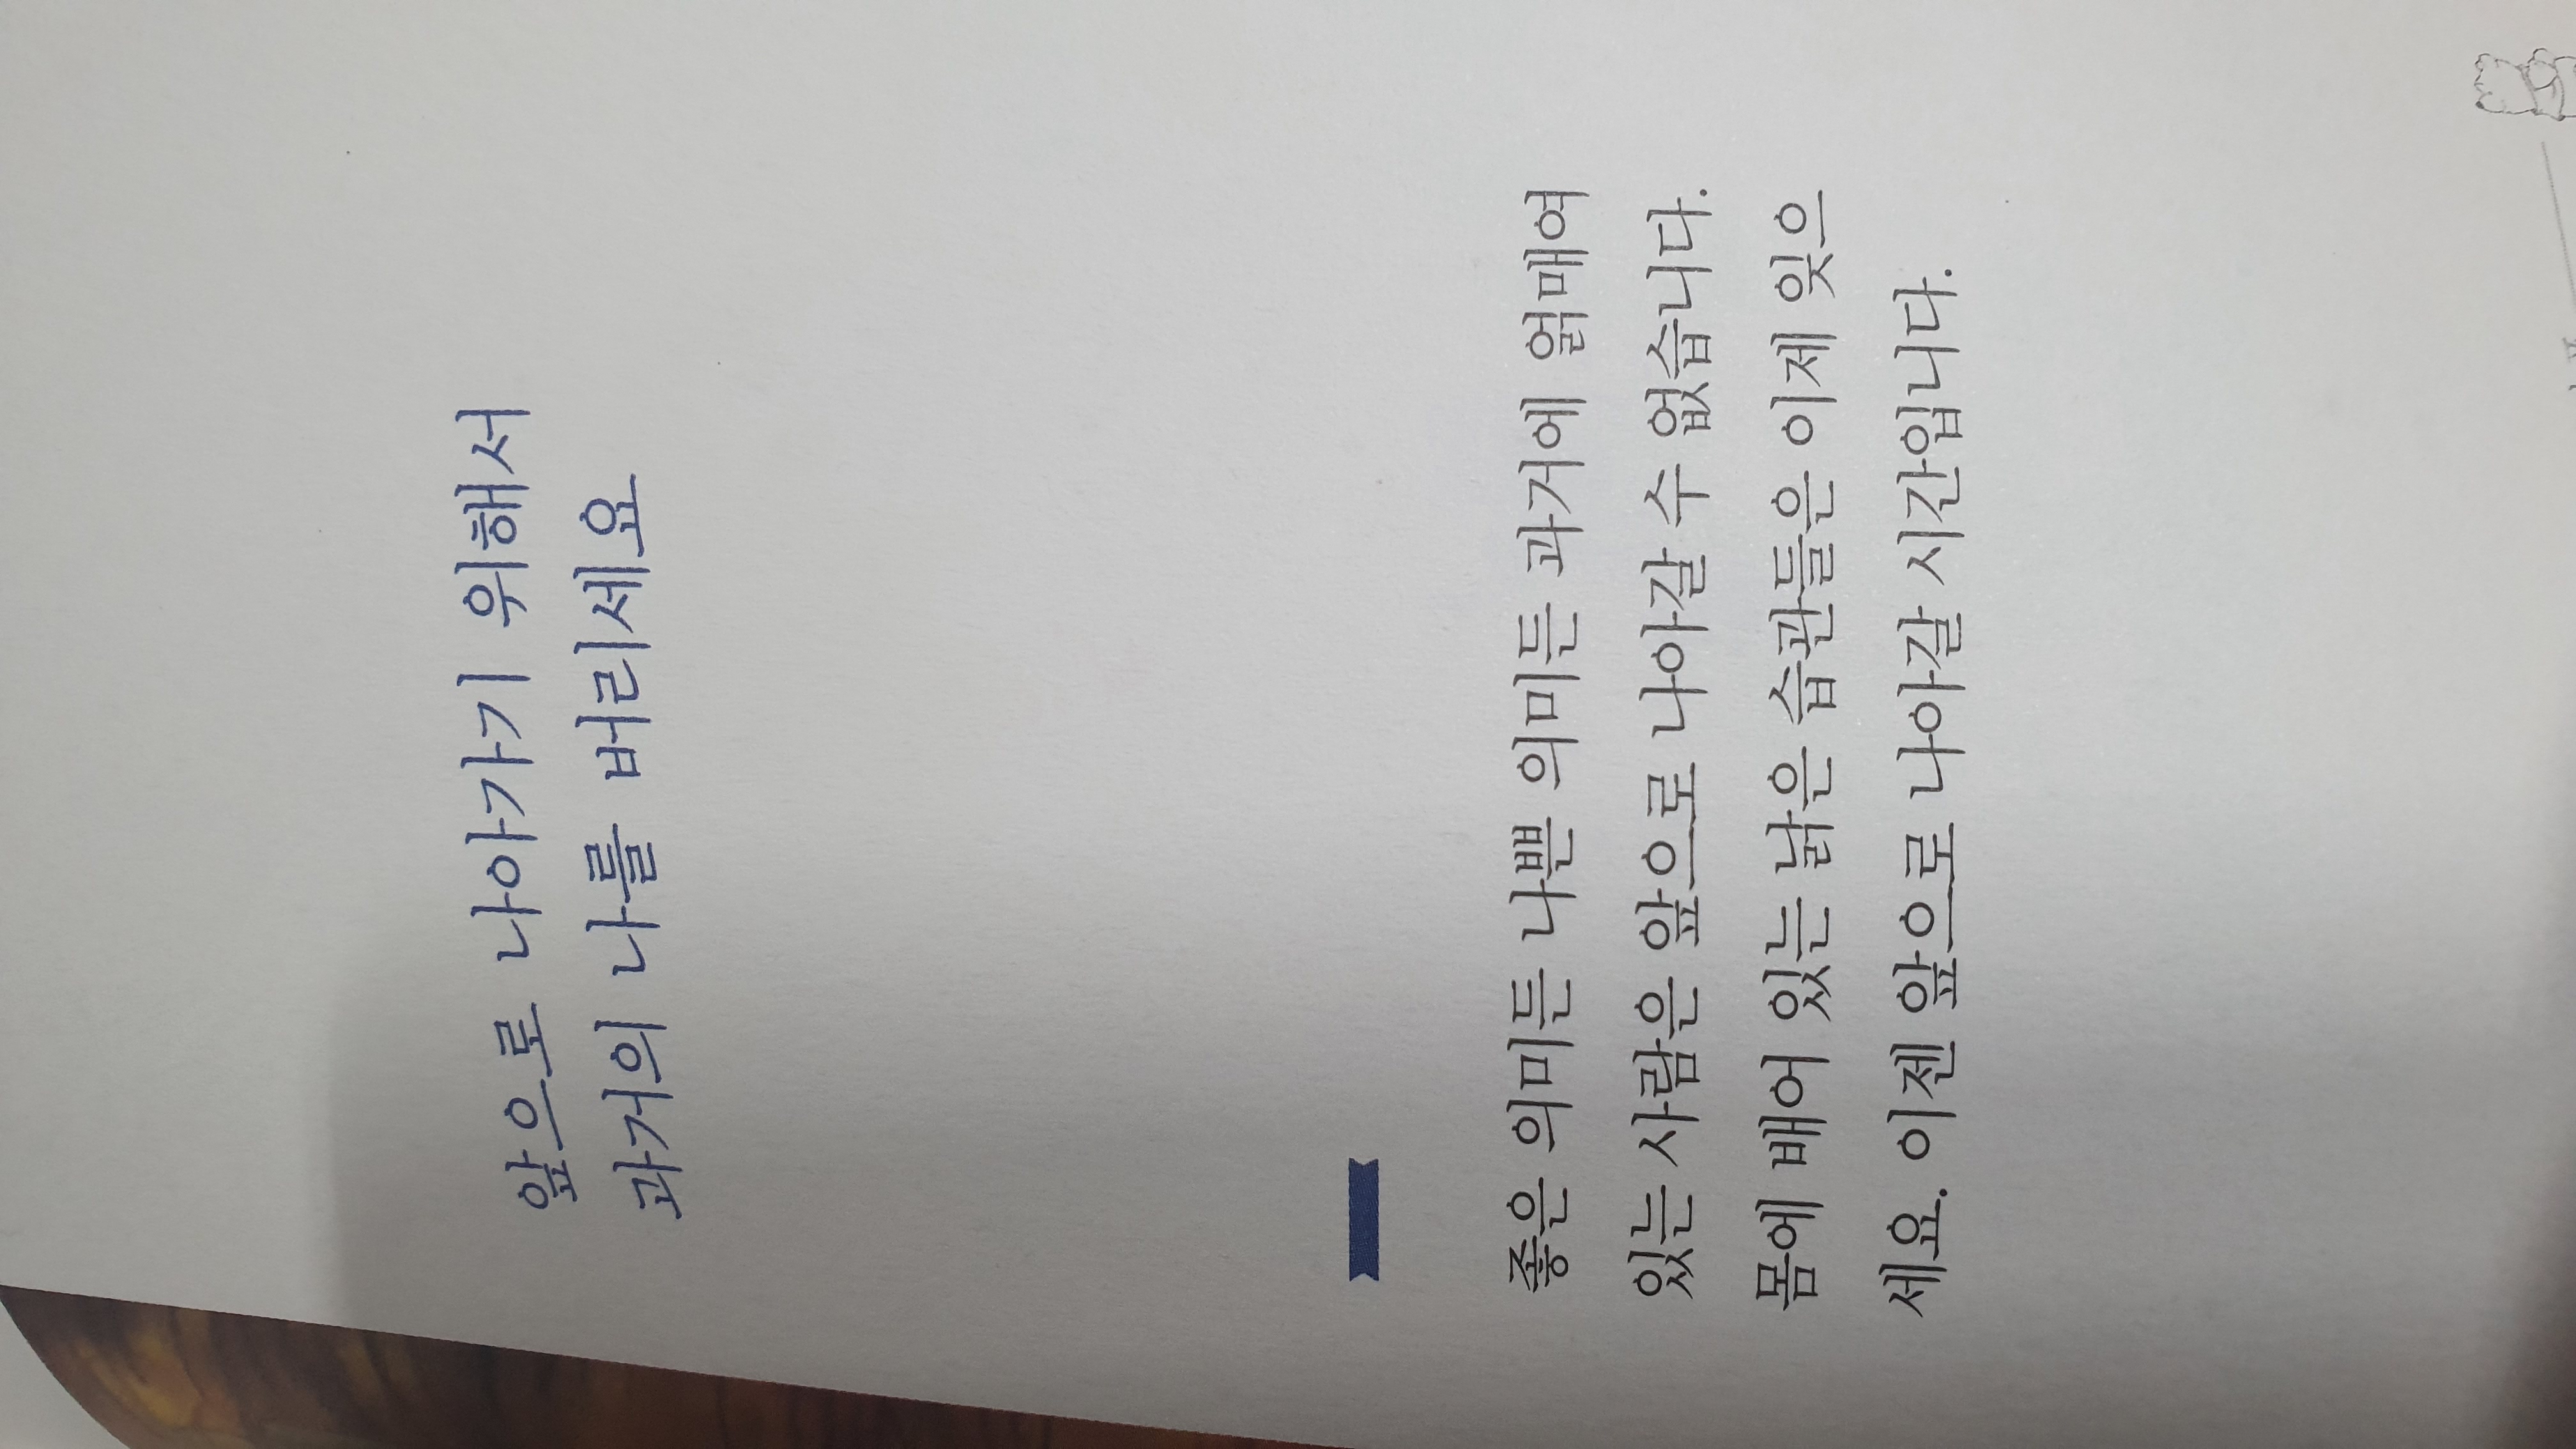 앞으로 나아가기 위해서
과거의 나를 버리세요
좋은 의미든 나쁜 의미든 과거에 얽매여
있는 사람은 앞으로 나아갈 수 없습니다.
몸에 배어 있는 낡은 습관들은 이제 잊으
세요. 이젠 앞으로 나아갈 시간입니다.